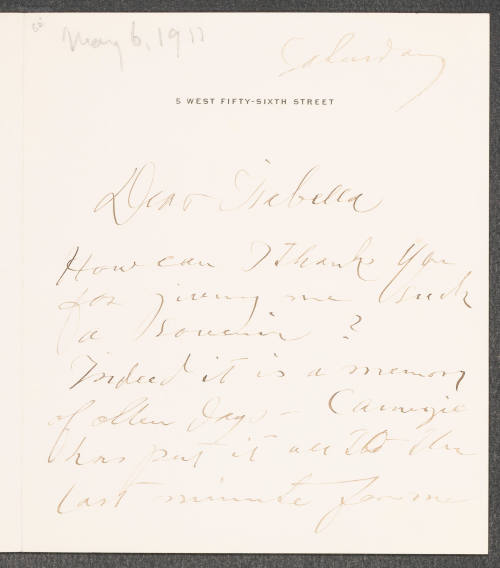 May 6, 1911
Saturday
5 WEST FIFTY-SIXTH STREET
Dear Isabella
How can I thank you
for giving me such
a souvenir?
Indeed it is a memory
of olden days - Carnegie
has put it all to the
last minute for me